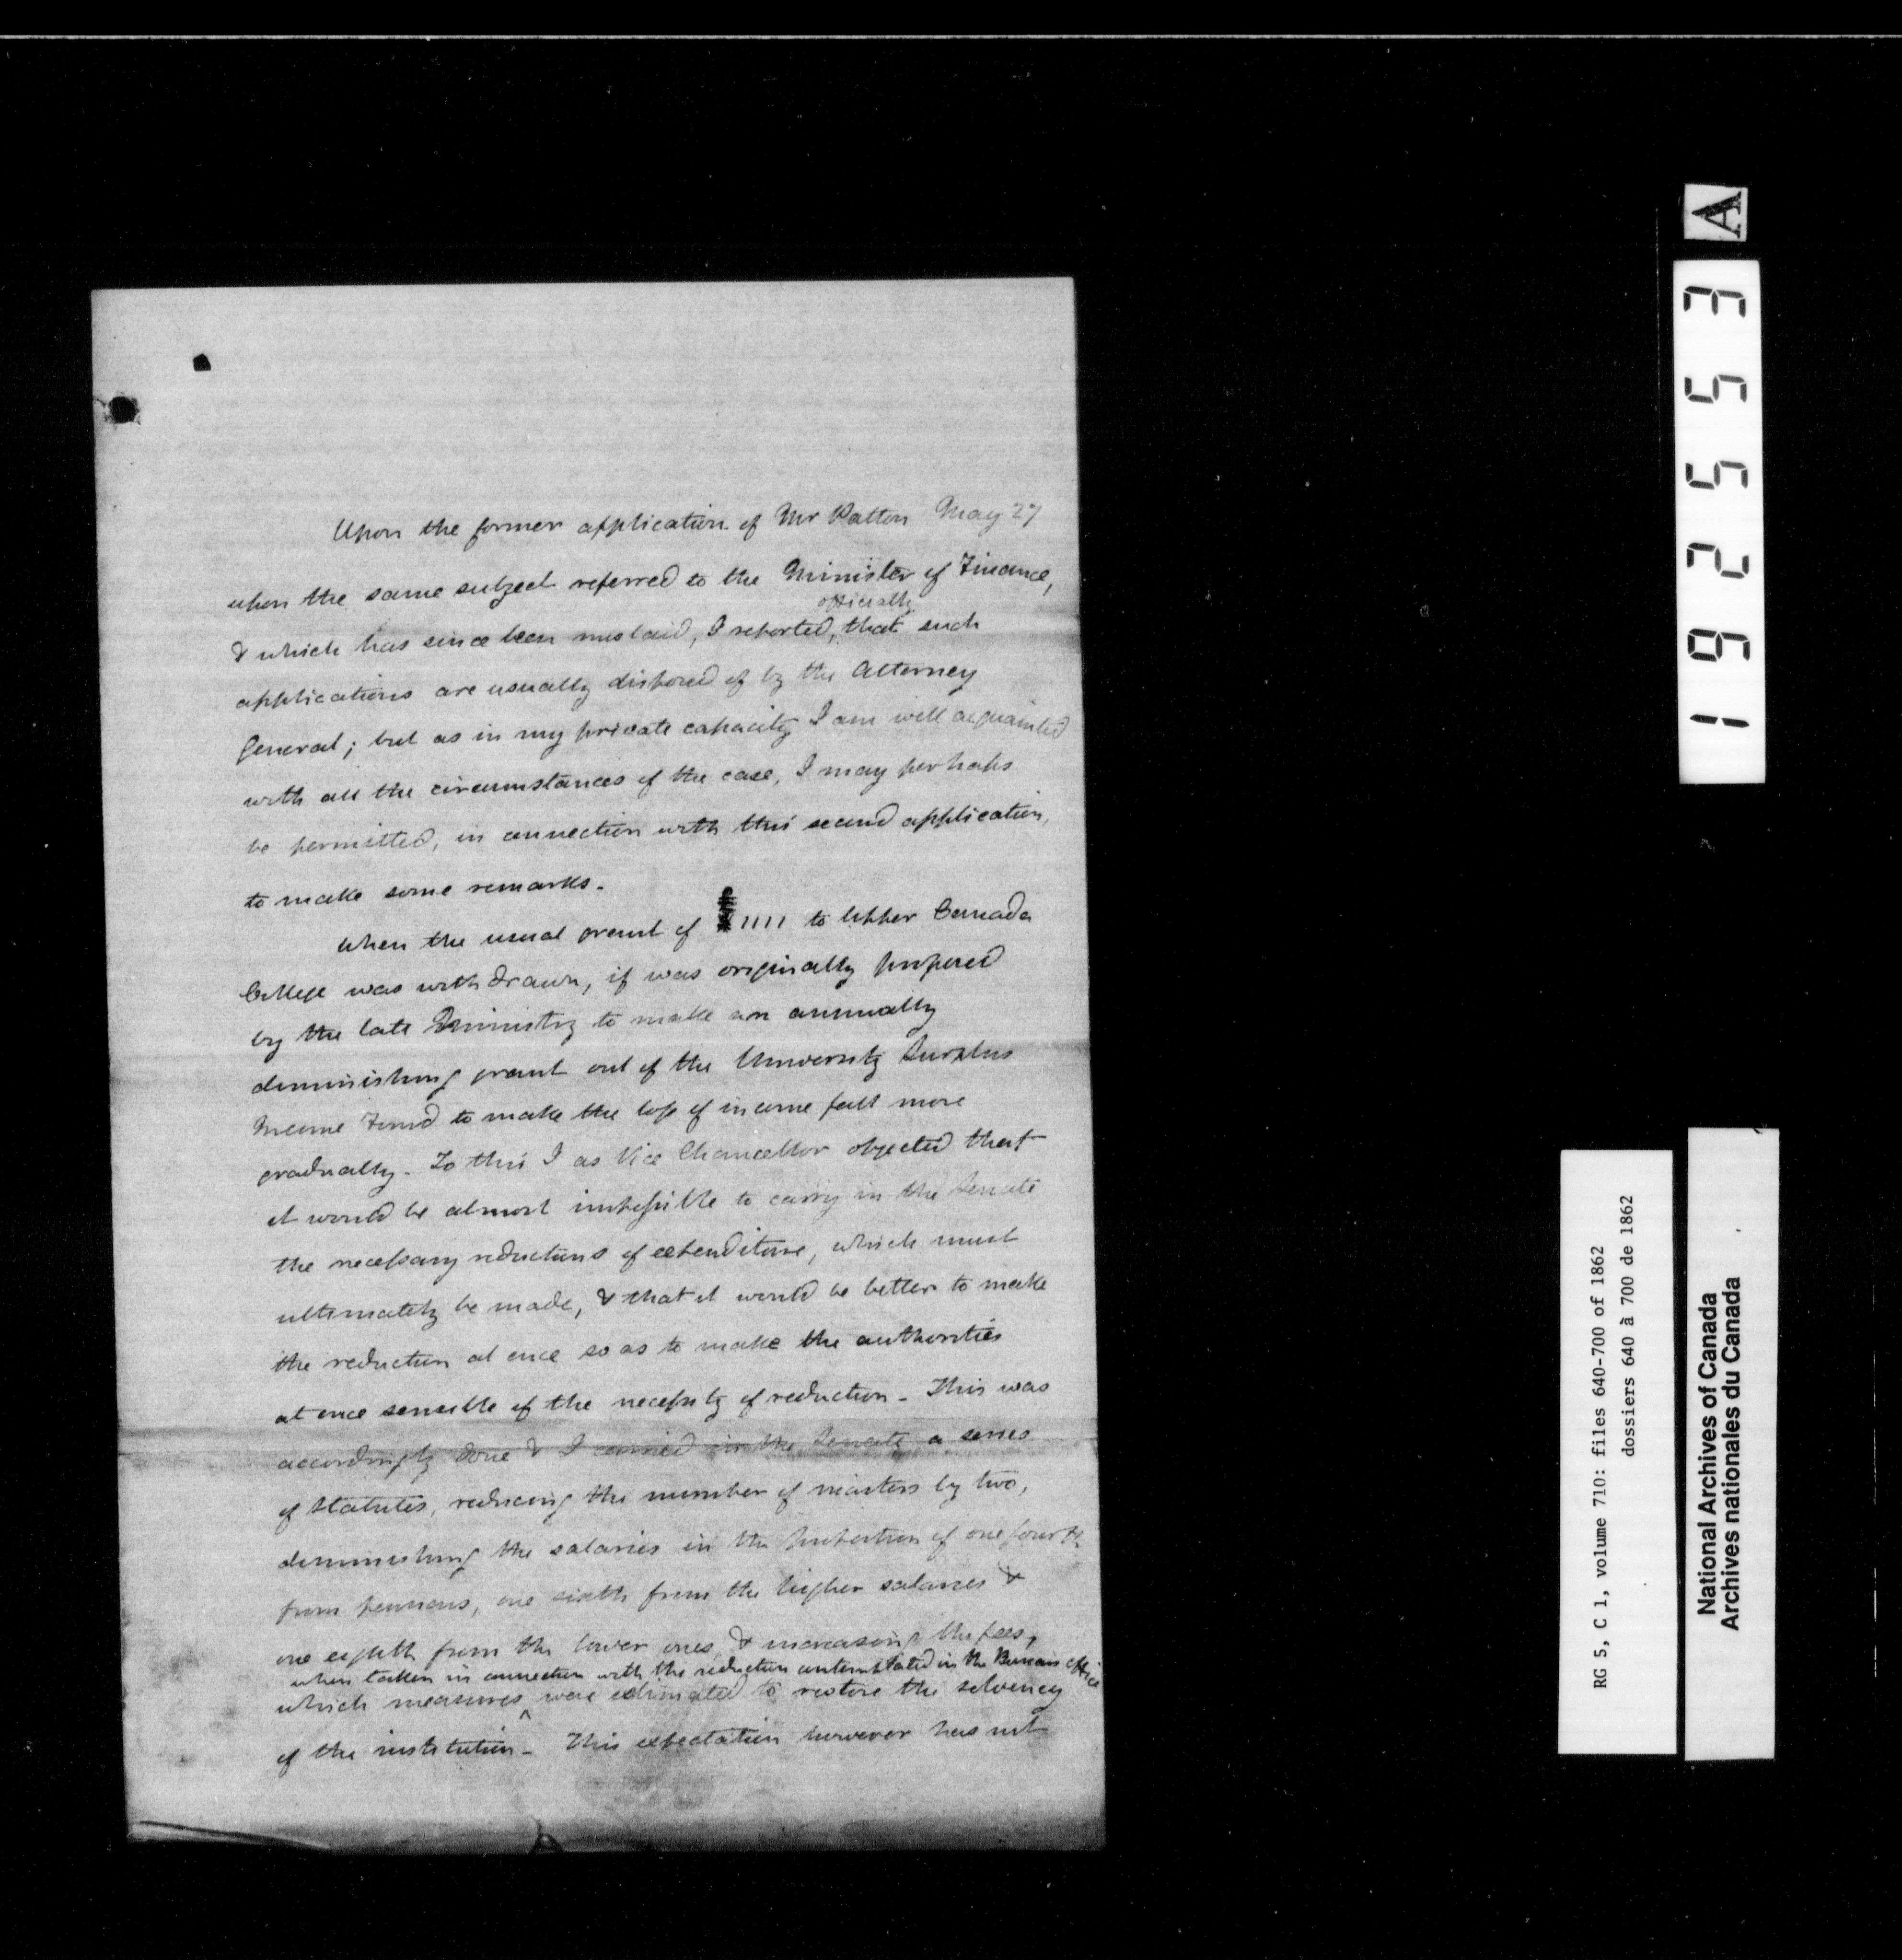 Upon the former application of Mr Patton May 27
upon the same subject referred to the Minister of Finance,
officially
& which has since been mislaid, I reported, that such
applications are usually disposed of by the Attorney
General; but as in my private capacity I am well acquainted
with all the circumstances of the case, I may perhaps
be permitted, in connection with this second application,
to make some remarks.
When the usual grant of £1111 to Upper Canada
College was withdrawn, it was originally proposed
by the late Ministry to make an annually
diminishing grant out of the University Surplus
Income Fund to make the loss of income fall more
gradually. To this I as Vice Chancellor objected that
it would be almost impossible to carry in the Senate
the necessary reductions of expenditure, which must
ultimately be made, & that it would be better to make
the reduction at once so as to make the authorities
at once sensible of the necessity of reduction. This was
accordingly done & I carried in the Senate a series
of Statutes, reducing the number of masters by two,
diminishing the salaries in the proportion of one fourth
from pensions, one sixth from the higher salaries &
one eighth from the lower ones, & increasing the fees,
when taken in connection with the reduction contemplated in the Bursars office
which measures were estimated to restore the solvency
of the institution. This expectation however has not
A
192553
RG 5, C 1, volume 710: files 640-700 of 1862
dossiers 640 à 700 de 1862
National Archives of Canada
Archives nationales du Canada